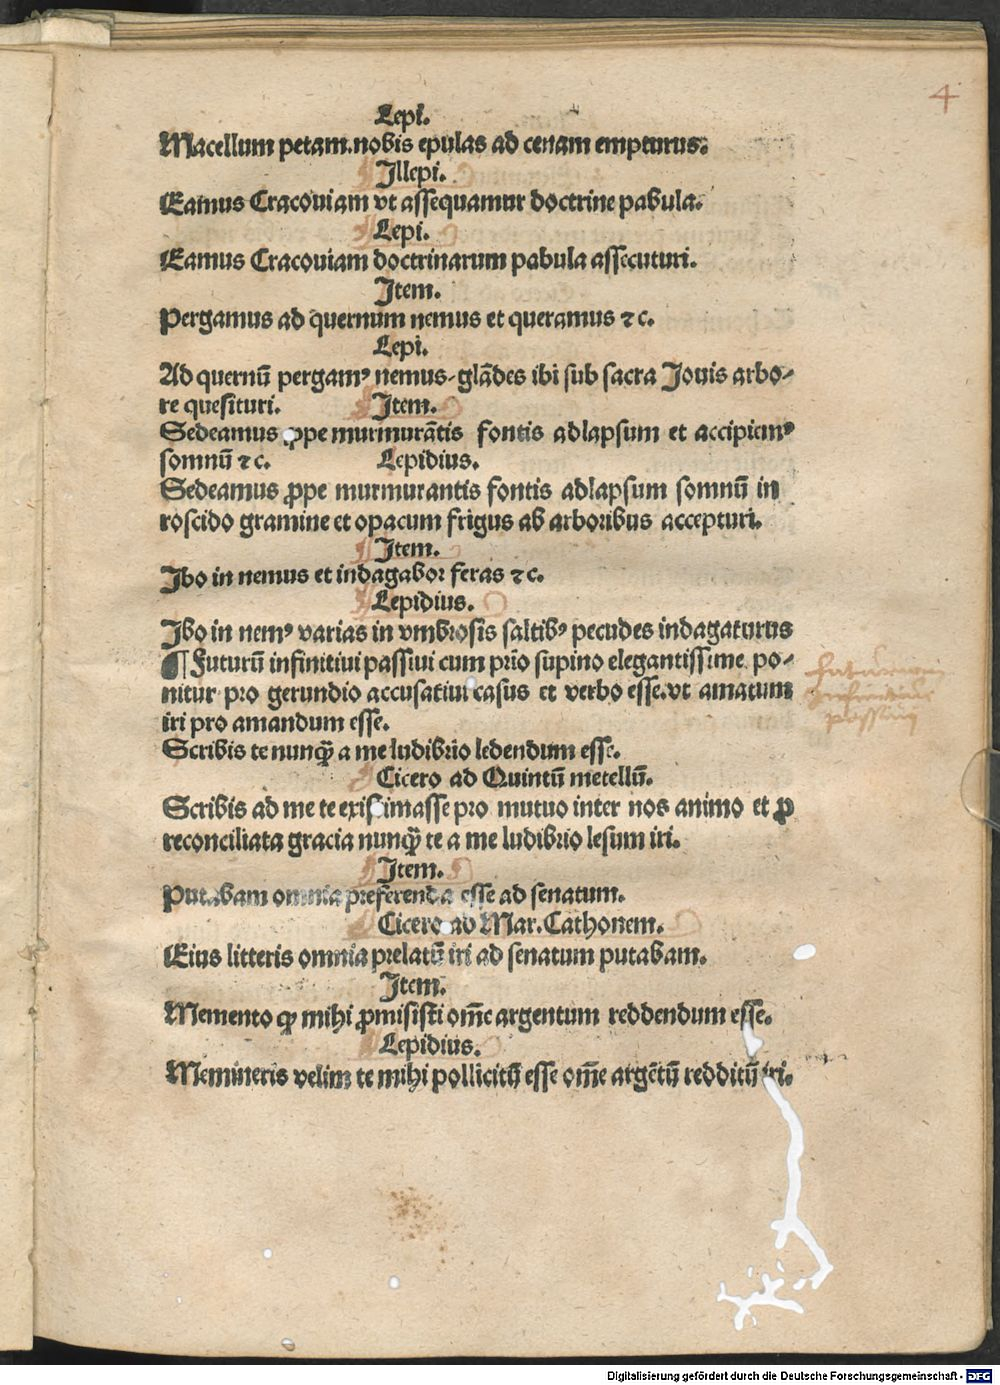 4
Lepi.
Macellum petam.nobis epulas ad cenam empturus.
Illepi.
Eamus Cracouiam vt assequamur doctrine pabula.
Lepi.
Eamus Cracouiam doctrinarum pabula assecuturi.
Item.
Pergamus ad quernum nemus et queramus ⁊c.
Lepi.
Ad quernū pergamꝰ nemus-glādes ibi sub sacra Jouis arbo⸗
re quesituri. Item.
Sedeamus ꝓpe murmurātis fontis adlapsum et accipiamꝰ
somnū ⁊c. Lepidius.
Sedeamus ꝓpe murmurantis fontis adlapsum somnū in
roscido gramine et opacum frigus ab arboribus accepturi.
Item.
Ibo in nemus et indagabor feras ⁊c.
Lepidius.
Ibo in nemꝰ varias in vmbrosis saltibꝰ pecudes indagaturus
¶ Futurū infinitiui passiui cum prīo supino elegantissime po⸗
nitur pro gerundio accusatiui casus et verbo esse.vt amatum
iri pro amandum esse.
Scribis te nunqꝫ̄ a me ludibrio ledendum esse.
Cicero ad Quintū metellū.
Scribis ad me te existimasse pro mutuo inter nos animo et ꝓ
reconciliata gracia nunqꝫ̄ te a me ludibrio lesum iri.
Item.
Putabam omnia preferenda esse ad senatum.
Cicero ad Mar.Cathonem.
Eius litteris omnia prelatū iri ad senatum putabam.
Item.
Memento ꝙ mihi ꝓmisisti om̄e argentum reddendum esse.
Lepidius.
Memineris velim te mihi pollicitū esse om̄e argētū redditū iri.
futurum
infinitiui
passiui
Digitalisierung gefördert durch die Deutsche Forschungsgemeinschaft - DFG